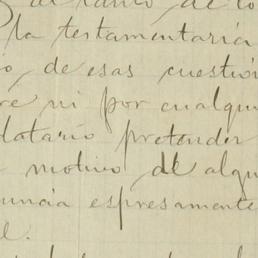 la testamentaria
o, de esas cuestio
re ni por cualqui
datario pretender
motivo de algu
uncia espresamente
e.